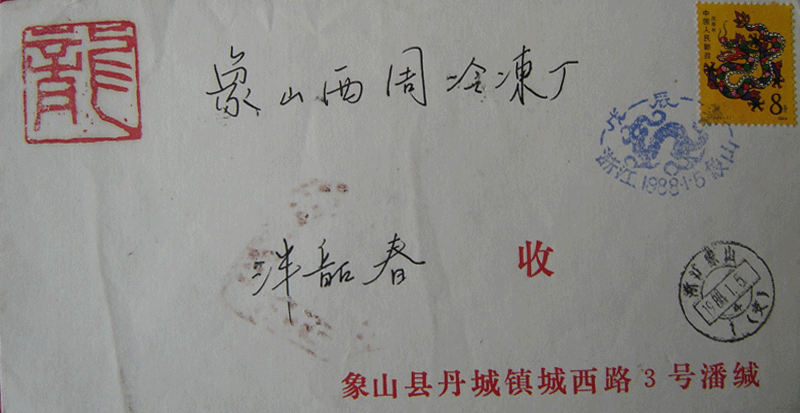 龍
象山西周冷冻厂
中国人民邮政
8分
戊辰
浙江.1988.1.5 象山
洋韶春
收
浙江象山
1988.1.5
象山县丹城镇城西路 3 号潘缄